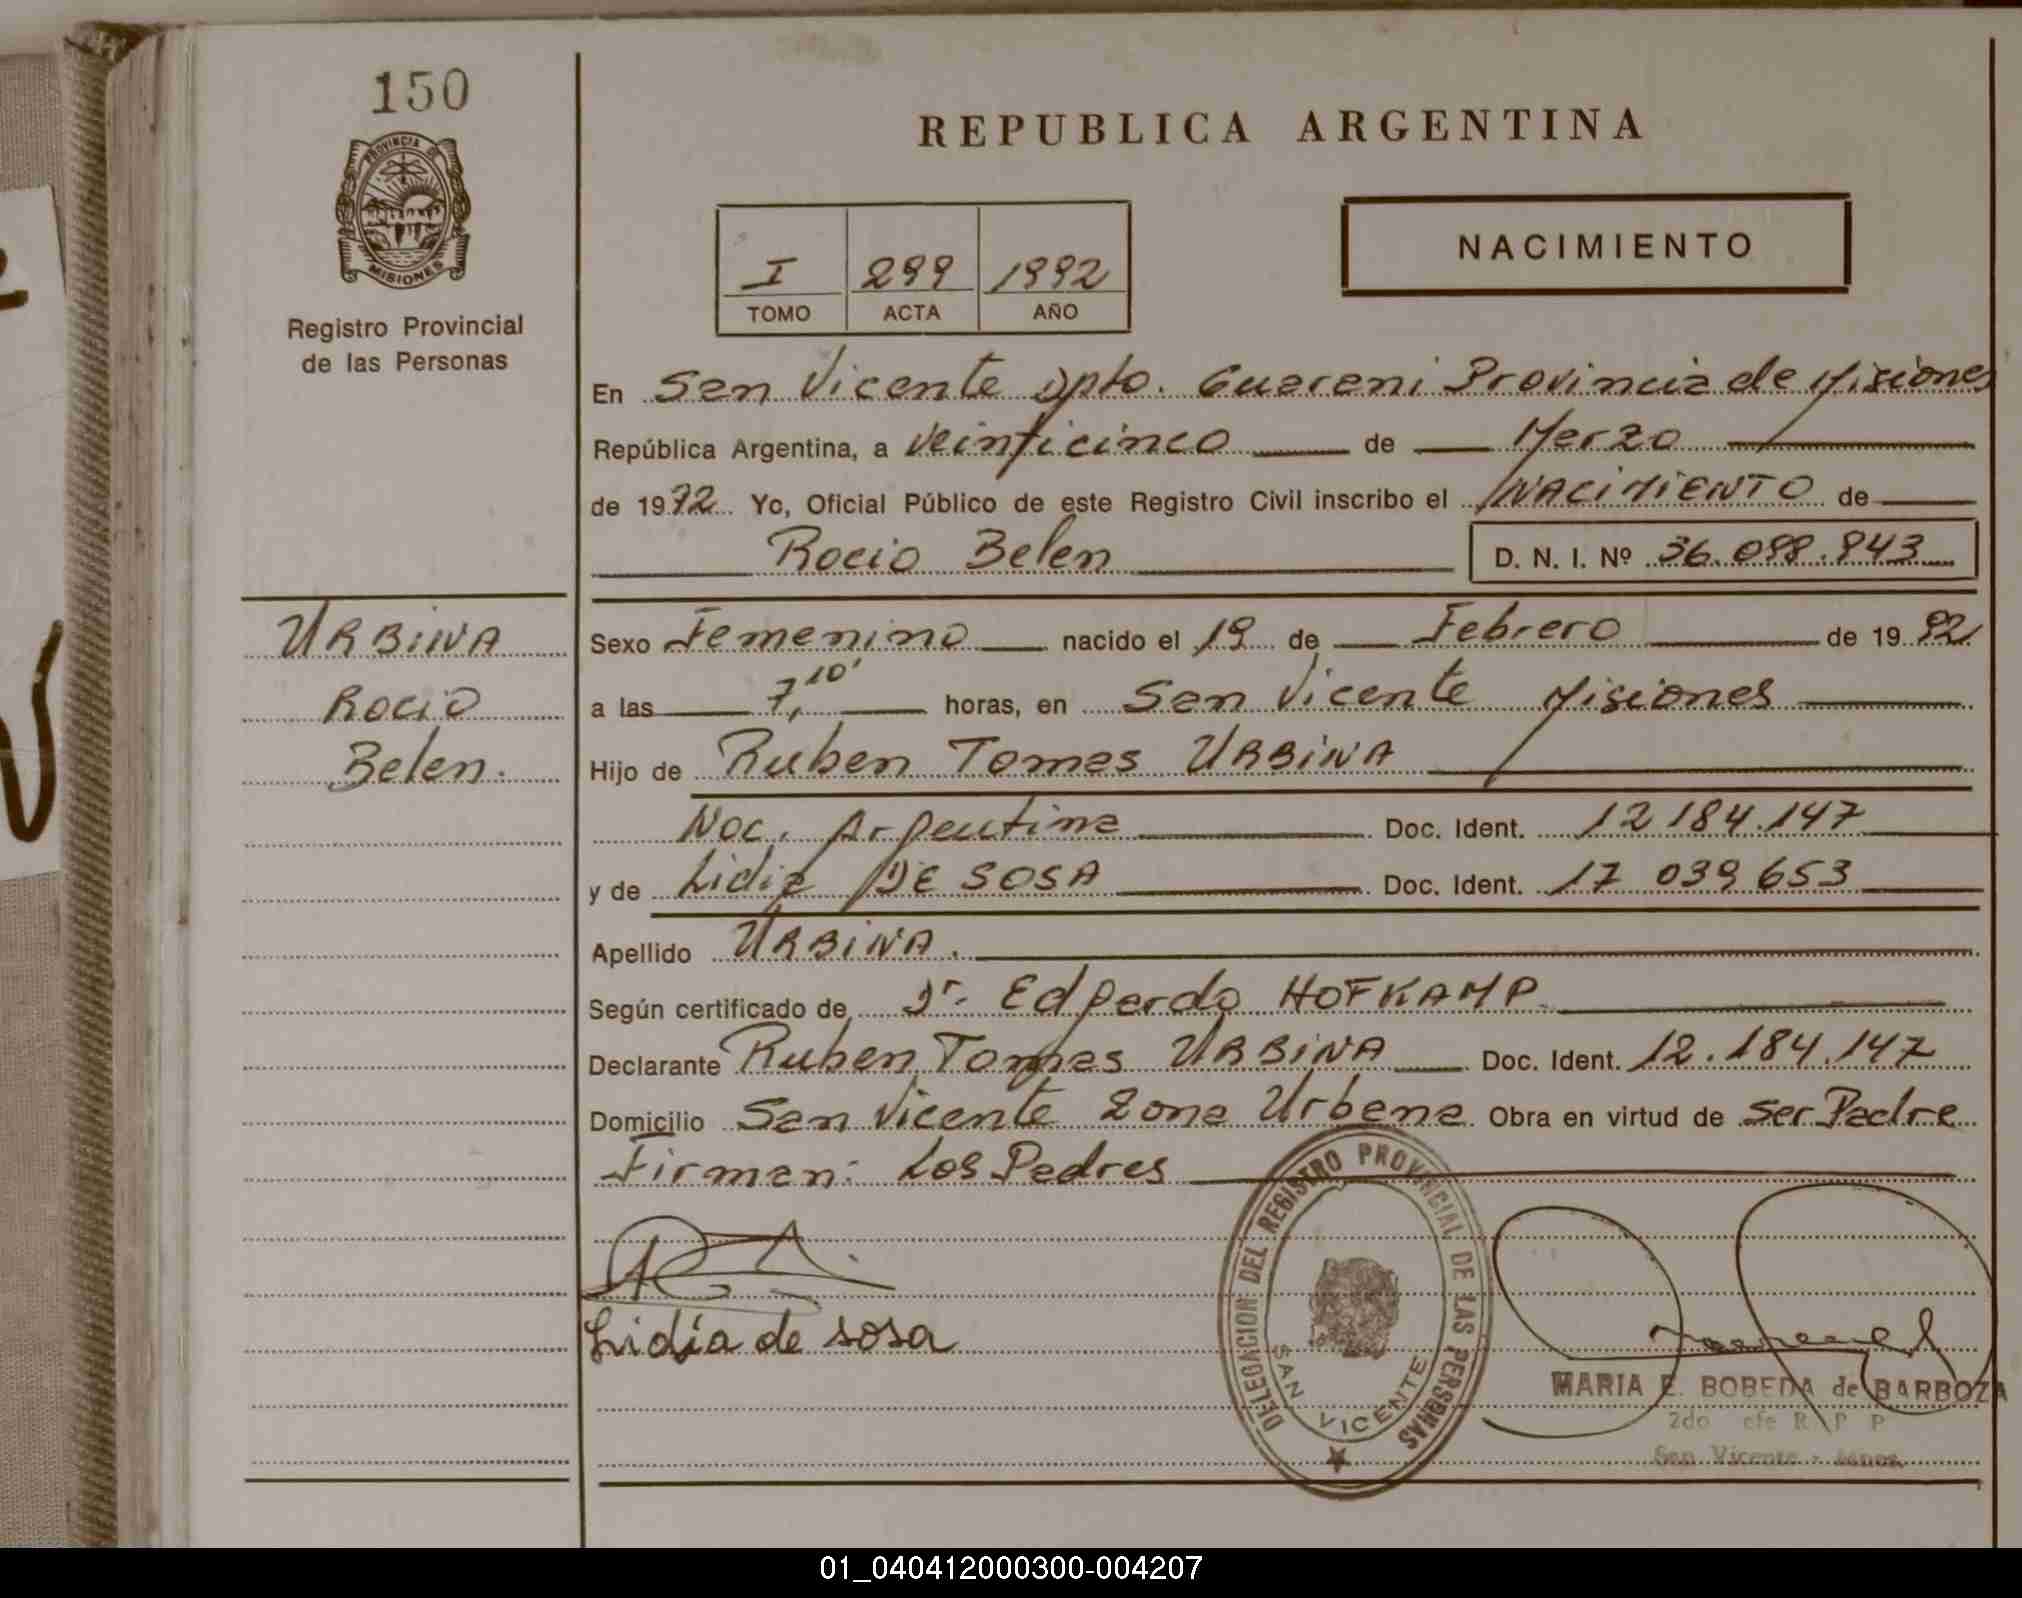 150
PROVINCIA DE
MISIONES
Registro Provincial
de las Personas
REPUBLICA ARGENTINA
I 299 1992
TOMO ACTA AÑO
NACIMIENTO
En San Vicente Dpto. Guarani Provincia de Misiones
República Argentina, a veinticinco de Marzo
de 1992 Yo, Oficial Público de este Registro Civil inscribo el NACIMIENTO de
Rocio Belen D. N. I. Nº 36.098.943
URBINA
Rocio
Belen.
Sexo Femenino nacido el 19 de Febrero de 1992
a las 7,10' horas, en San Vicente Misiones
Hijo de Ruben Tomas URBINA
Nac. Argentina Doc. Ident. 12 184.147
y de Lidia DE SOSA Doc. Ident. 17 039 653
Apellido URBINA.
Según certificado de Dr. Edgardo HOFKAMP
Declarante Ruben Tomas URBINA Doc. Ident. 12.184.147
Domicilio San Vicente Zona Urbana Obra en virtud de ser Padre
Firman: Los Padres
Lidia de sosa
DELEGACION DEL REGISTRO PROVINCIAL DE LAS PERSONAS
SAN VICENTE
MARIA E. BOBEDA de BARBOZA
2do efe R P P
San Vicente -
01_040412000300-004207